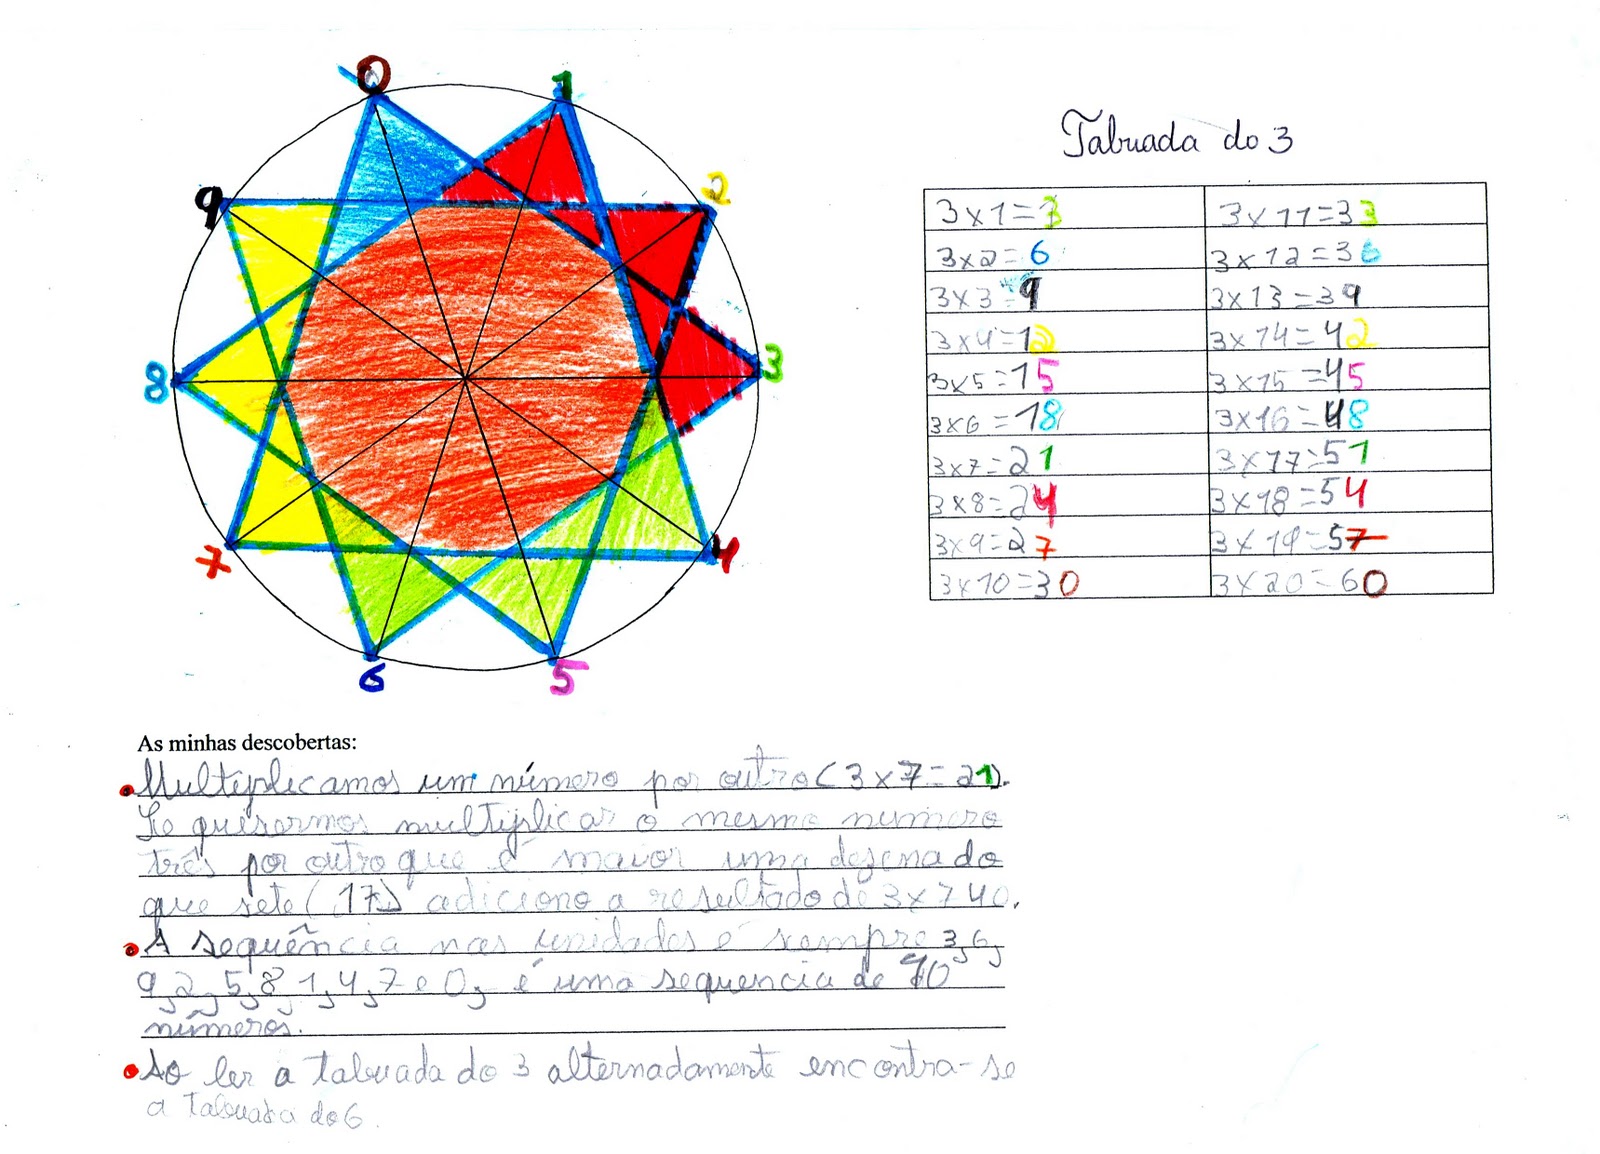 0
1
2
3
4
5
6
7
8
9
Tabuada do 3
3x1=3
3x11=33
3x2=6
3x12=36
3x3=9
3x13=39
3x4=12
3x14=42
3x5=15
3x15=45
3x6=18
3x16=48
3x7=21
3x17=51
3x8=24
3x18=54
3x9=27
3x19=57
3x10=30
3x20=60
As minhas descobertas:
Multiplicamos um número por outro (3x7=21).
Se quisermos multiplicar o mesmo número
três por outro que é maior uma dezena do
que sete (17) adiciono a resultado de 3x7 40.
A sequência nas unidades é sempre 3,6,
9,2,5,8,1,4,7 e 0, é uma sequencia de 10
números.
Ao ler a tabuada do 3 alternadamente encontra-se
a tabuada do 6.